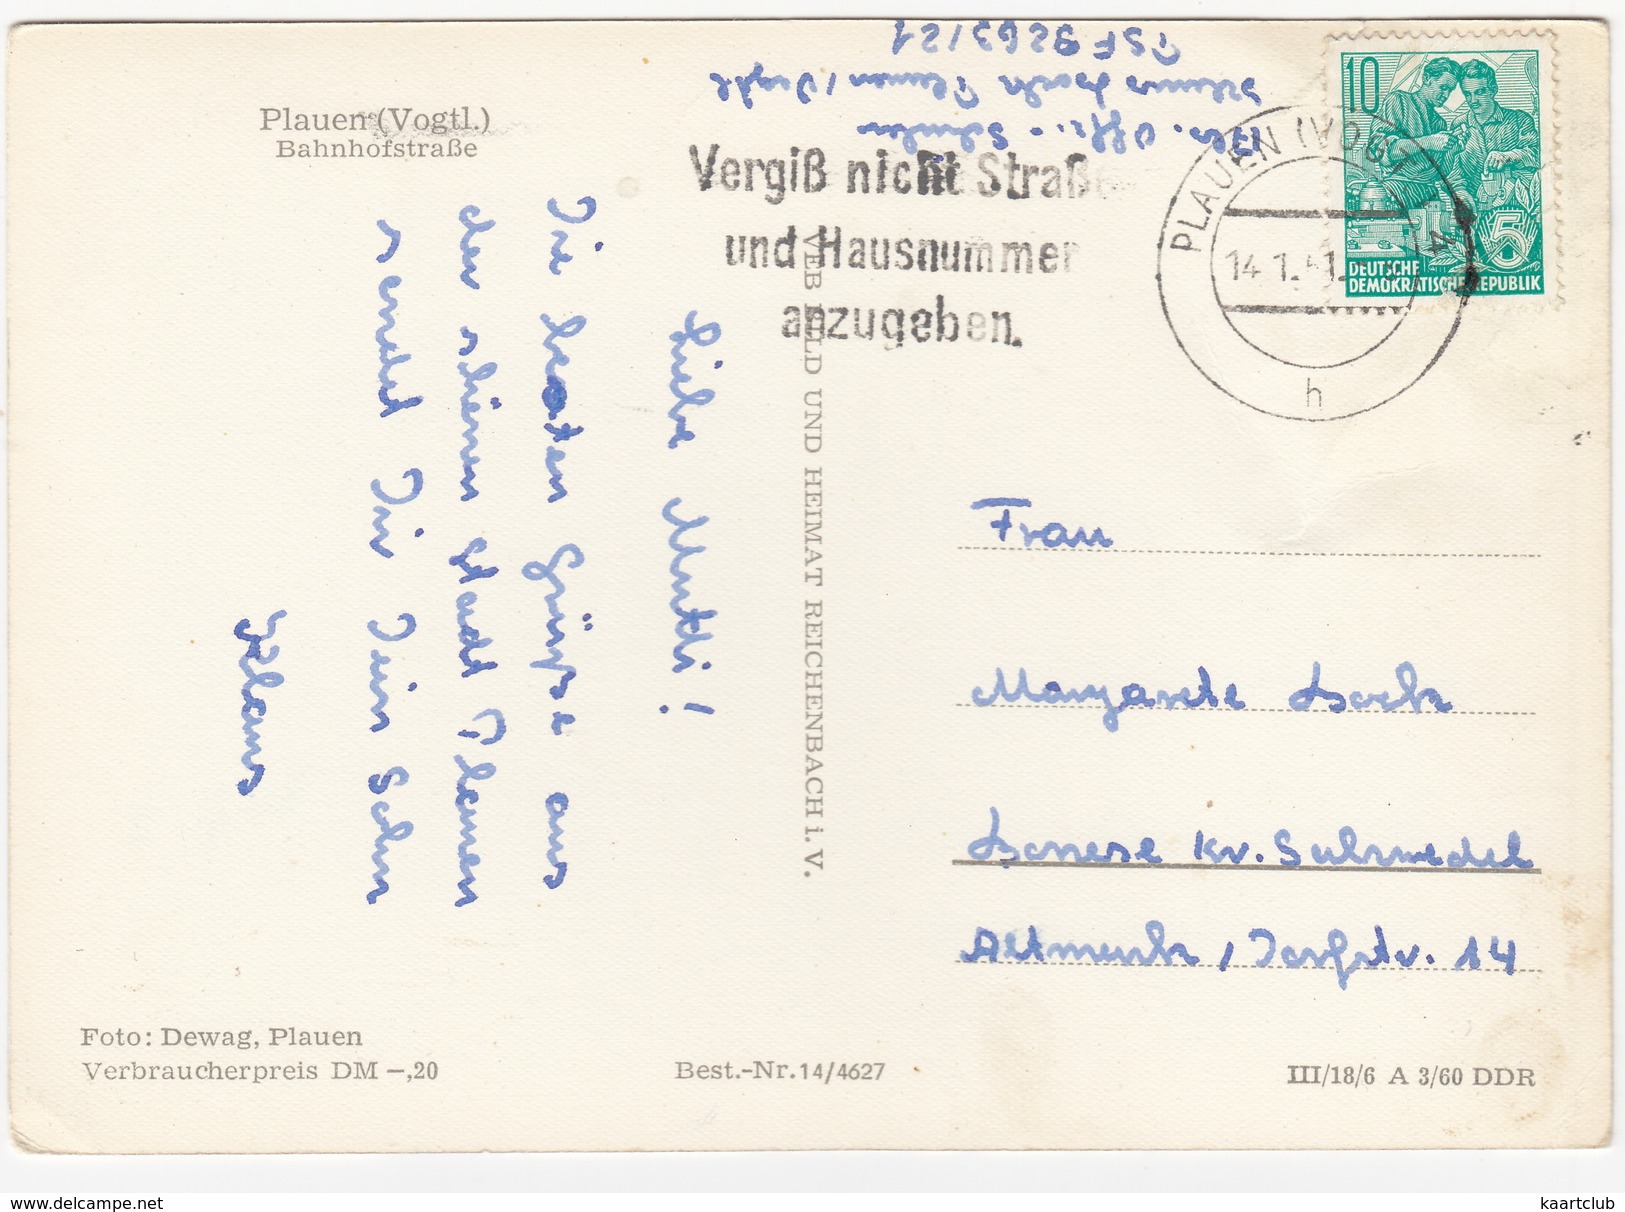 Plauen (Vogtl.)
Bahnhofstraße
Liebe Mutti!
Die besten Grüße aus
der schönen Stadt Plauen
sendet Dir Dein Sohn
Klaus
Offz.-Schüler
Klaus Plauen/Vogtl
PSF 9263/21
Vergiß nicht Straße
und Hausnummer
anzugeben.
PLAUEN (VOGTL) 4
14.1.61
h
10
5
DEUTSCHE
DEMOKRATISCHE REPUBLIK
VEB BILD UND HEIMAT REICHENBACH i. V.
Frau
Margarete
Kr. Salzwedel
Altmark / Dorfstr. 14
Foto: Dewag, Plauen
Verbraucherpreis DM -,20
Best.-Nr. 14/4627
III/18/6 A 3/60 DDR
kaartclub